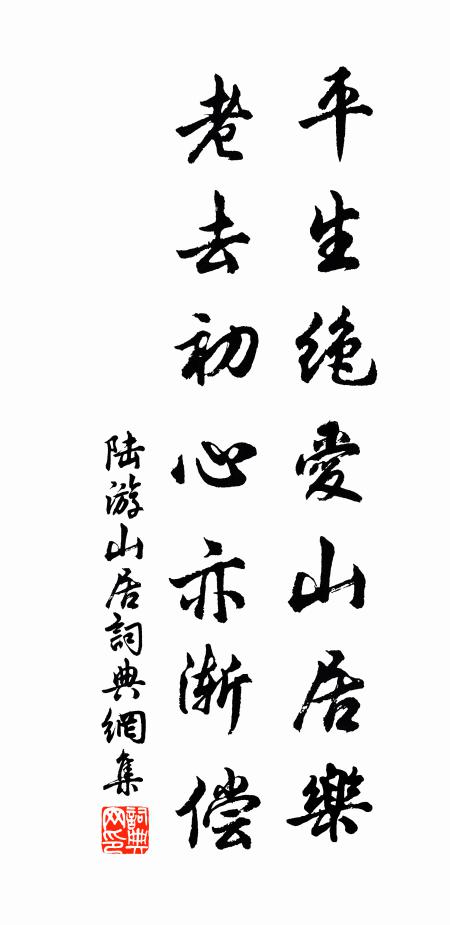 平生絶愛山居樂
老去初心亦渐偿
陆游山居詞典網集
詞典网印